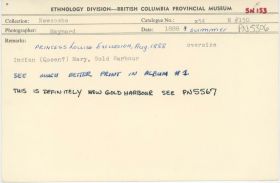 ETHNOLOGY DIVISION—BRITISH COLUMBIA PROVINCIAL MUSEUM
SN 153
Collection: Newcombe Catalogue No.: #54 H #150
Photographer: Maynard Date: 1888 summer PN 5306
Remarks: PRINCESS LOUISE EXCURSION, Aug. 1888 oversize
Indian (Queen?) Mary, Gold Harbour
SEE MUCH BETTER PRINT IN ALBUM #1
THIS IS DEFINITELY NEW GOLD HARBOUR SEE PN5567